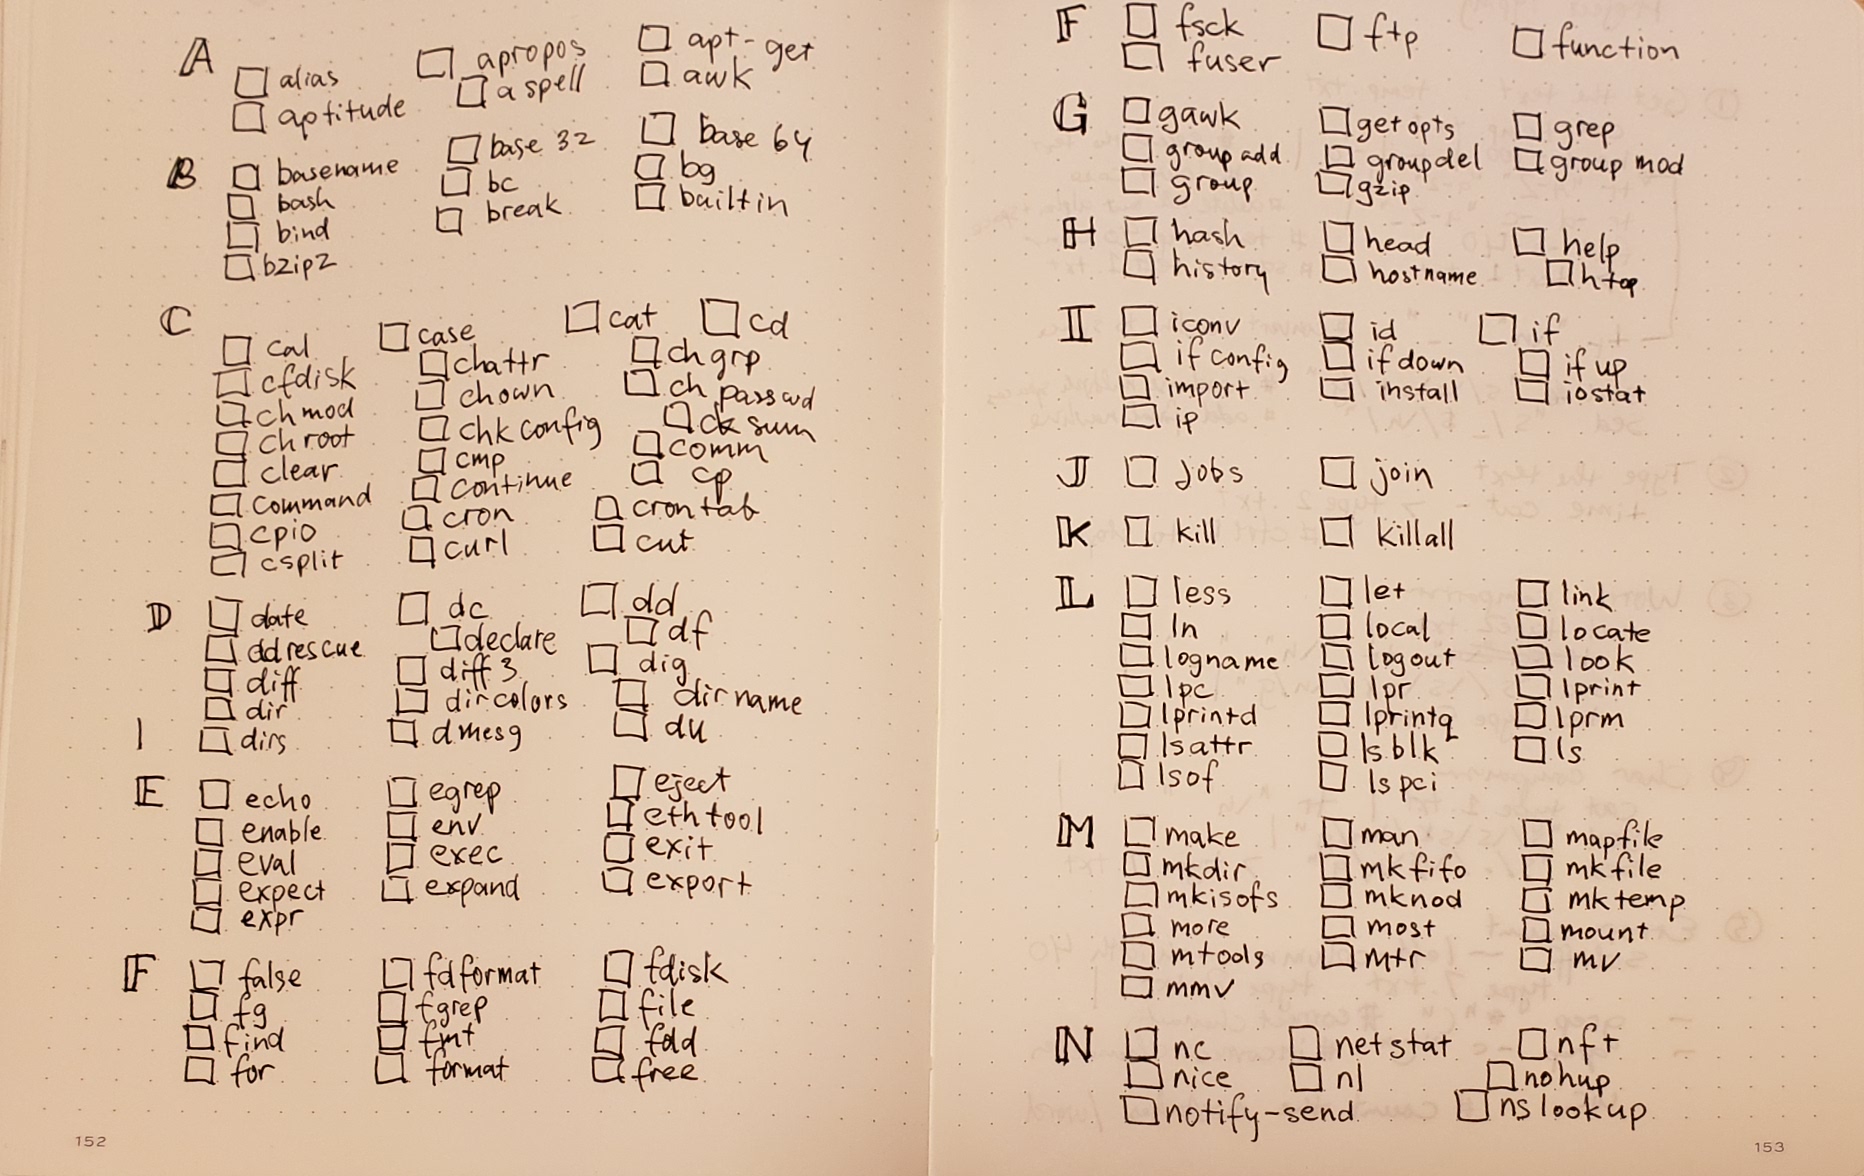 A
☐ alias ☐ apropos ☐ apt-get
☐ aptitude ☐ aspell ☐ awk
B
☐ basename ☐ base 32 ☐ base 64
☐ bash ☐ bc ☐ bg
☐ bind ☐ break ☐ builtin
☐ bzip2
C
☐ cal ☐ case ☐ cat ☐ cd
☐ cfdisk ☐ chattr ☐ chgrp
☐ chmod ☐ chown ☐ chpasswd
☐ chroot ☐ chkconfig ☐ cksum
☐ clear ☐ cmp ☐ comm
☐ command ☐ continue ☐ cp
☐ cpio ☐ cron ☐ crontab
☐ csplit ☐ curl ☐ cut
D
☐ date ☐ dc ☐ dd
☐ ddrescue ☐ declare ☐ df
☐ diff ☐ diff3 ☐ dig
☐ dir ☐ dircolors ☐ dirname
☐ dirs ☐ dmesg ☐ du
E
☐ echo ☐ egrep ☐ eject
☐ enable ☐ env ☐ ethtool
☐ eval ☐ exec ☐ exit
☐ expect ☐ expand ☐ export
☐ expr
F
☐ false ☐ fdformat ☐ fdisk
☐ fg ☐ fgrep ☐ file
☐ find ☐ fmt ☐ fold
☐ for ☐ format ☐ free
152
F
☐ fsck ☐ ftp ☐ function
☐ fuser
G
☐ gawk ☐ getopts ☐ grep
☐ groupadd ☐ groupdel ☐ groupmod
☐ group ☐ gzip
H
☐ hash ☐ head ☐ help
☐ history ☐ hostname ☐ htop
I
☐ iconv ☐ id ☐ if
☐ ifconfig ☐ ifdown ☐ ifup
☐ import ☐ install ☐ iostat
☐ ip
J
☐ jobs ☐ join
K
☐ kill ☐ killall
L
☐ less ☐ let ☐ link
☐ ln ☐ local ☐ locate
☐ logname ☐ logout ☐ look
☐ lpc ☐ lpr ☐ lprint
☐ lprintd ☐ lprintq ☐ lprm
☐ lsattr ☐ lsblk ☐ ls
☐ lsof ☐ lspci
M
☐ make ☐ man ☐ mapfile
☐ mkdir ☐ mkfifo ☐ mkfile
☐ mkisofs ☐ mknod ☐ mktemp
☐ more ☐ most ☐ mount
☐ mtools ☐ mtr ☐ mv
☐ mmv
N
☐ nc ☐ netstat ☐ nft
☐ nice ☐ nl ☐ nohup
☐ notify-send ☐ nslookup
153